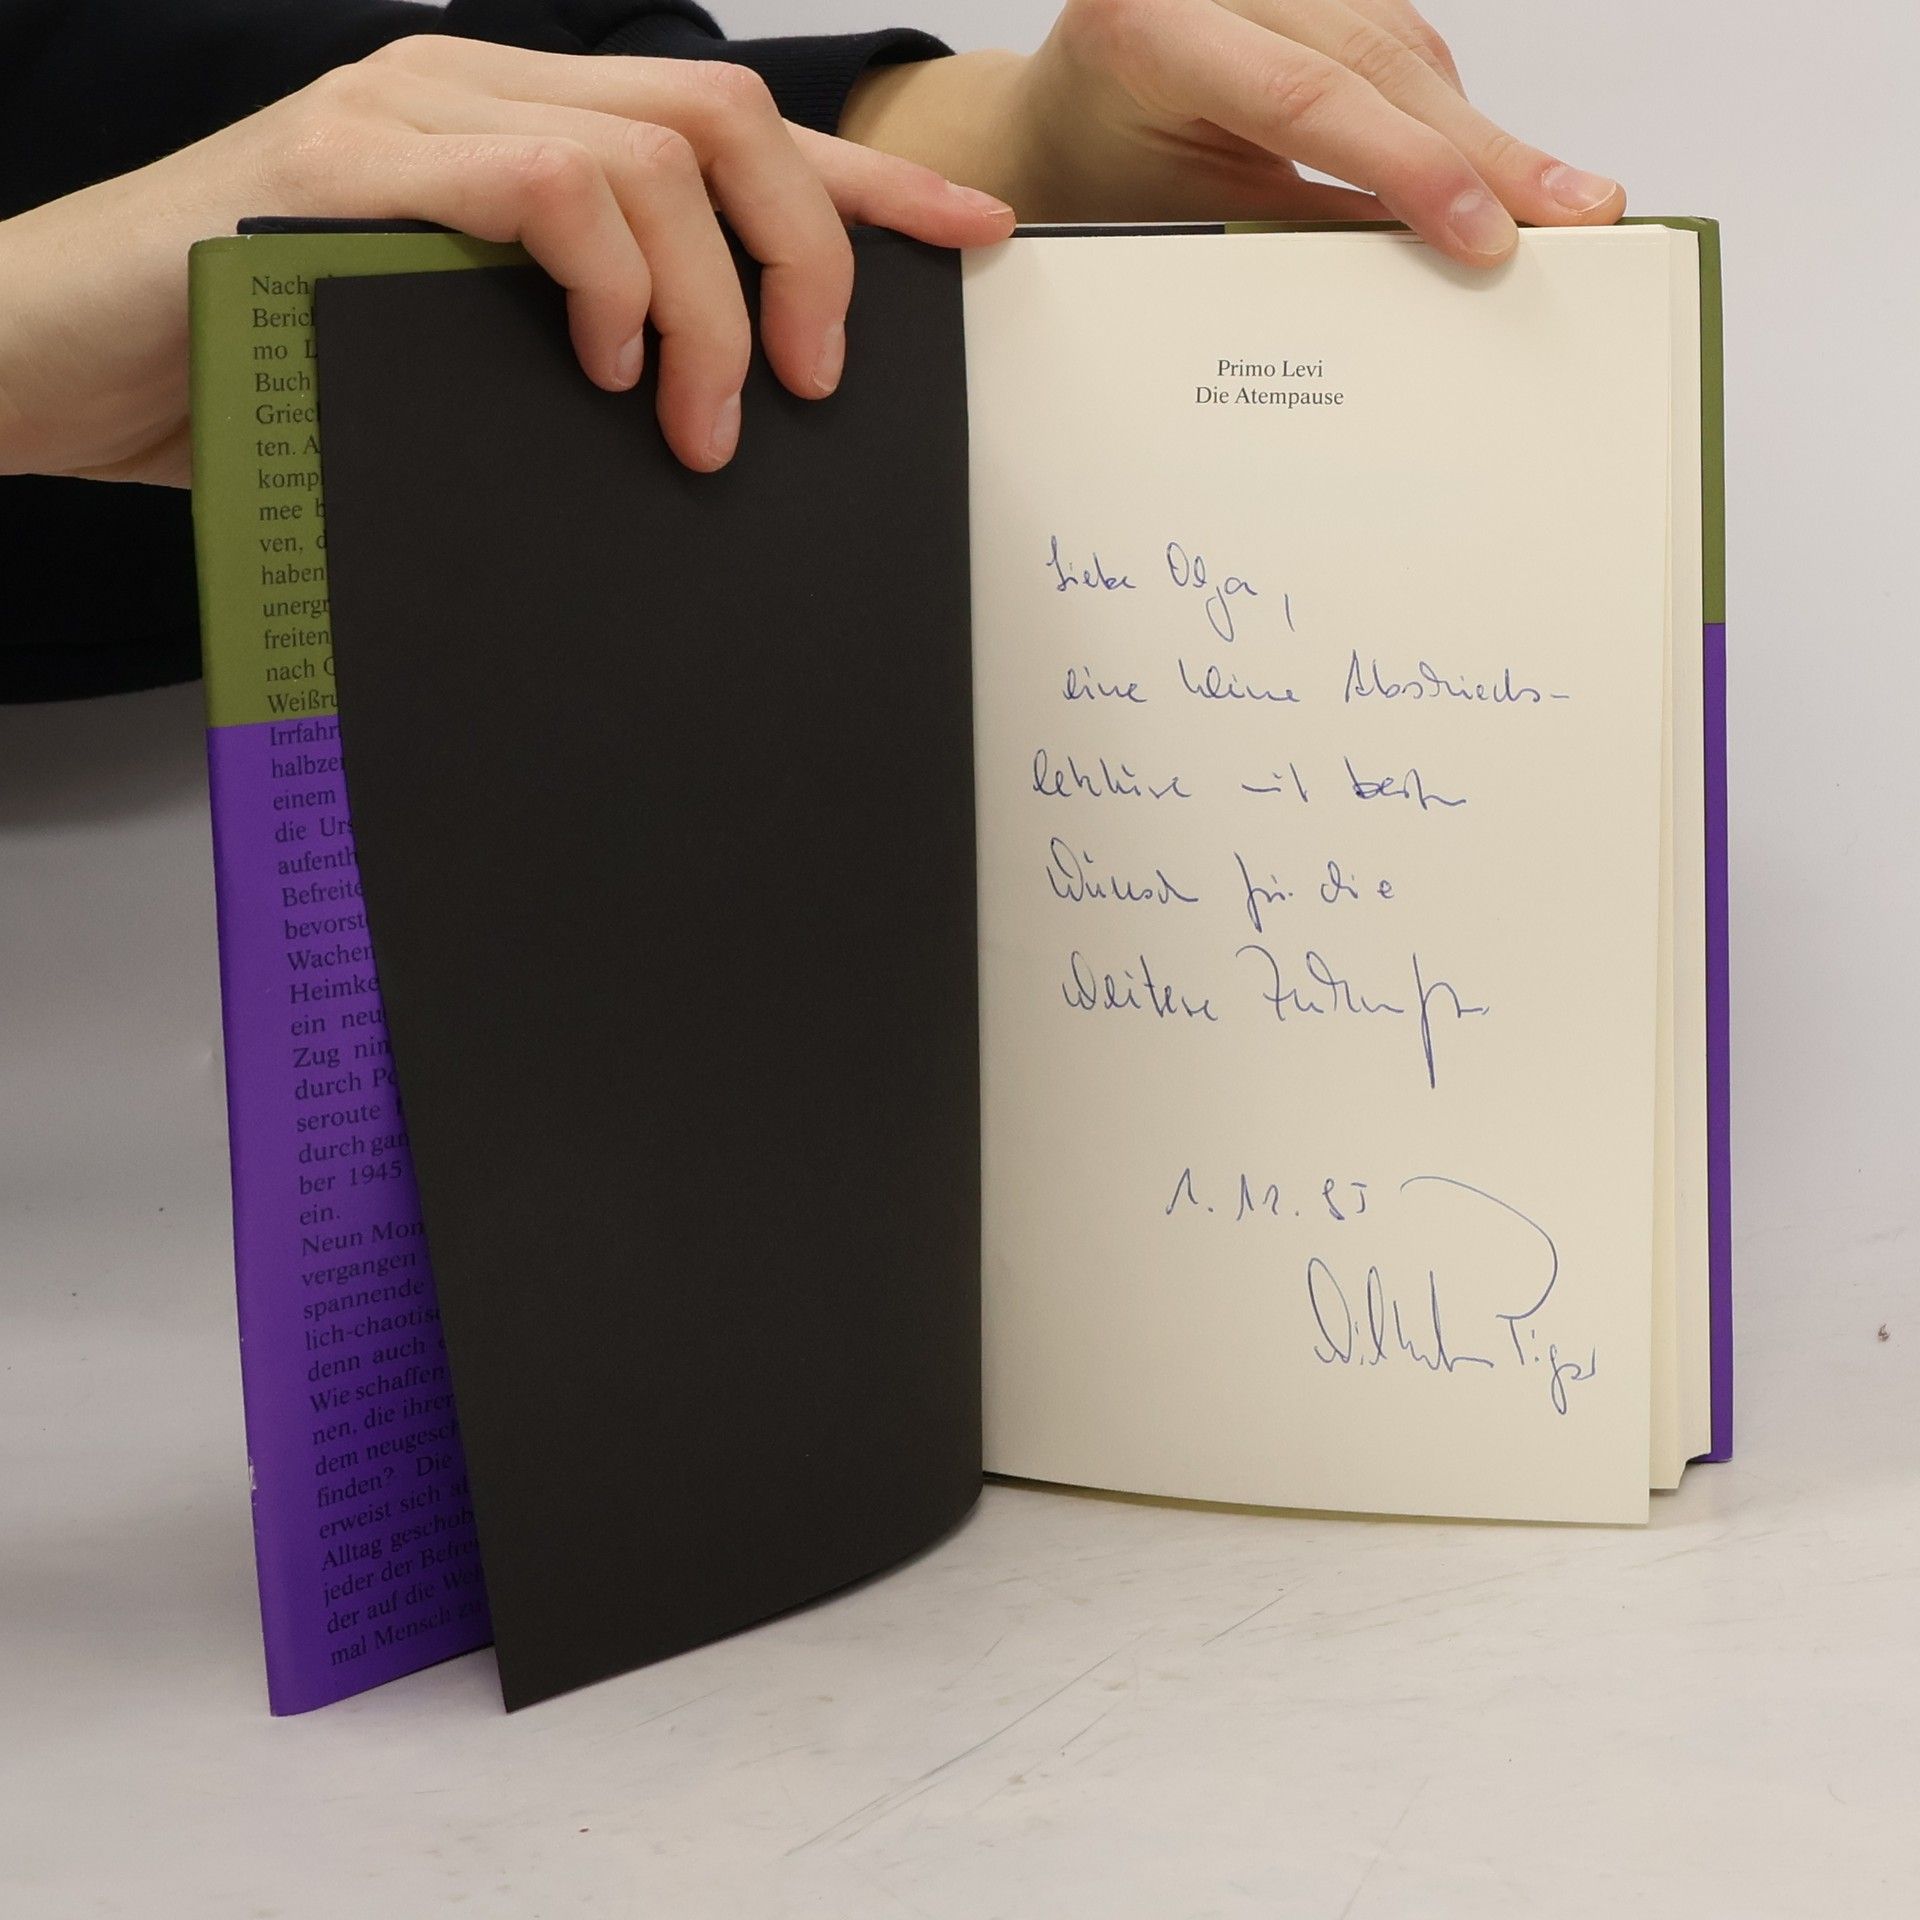 Nach
Berich
mo L
Buch
Griech
ten. A
komp
mee b
ven, d
haben
unergr
freiten
nach G
Weißru
Irrfahr
halbze
einem
die Urs
aufenth
Befreite
bevorst
Wachen
Heimke
ein neu
Zug nim
durch Po
seroute
durch gan
ber 1945
ein.
Neun Mon
vergangen
spannende
lich-chaotisc
denn auch
Wie schaffen
nen, die ihrer
dem neugesch
finden? Die
erweist sich al
Alltag geschob
jeder der Befrei
der auf die Wel
mal Mensch zu
Primo Levi
Die Atempause
Liebe Olga,
eine kleine Abschieds-
lektüre mit besten
Wünschen für die
weitere Zukunft.
Wilhelm